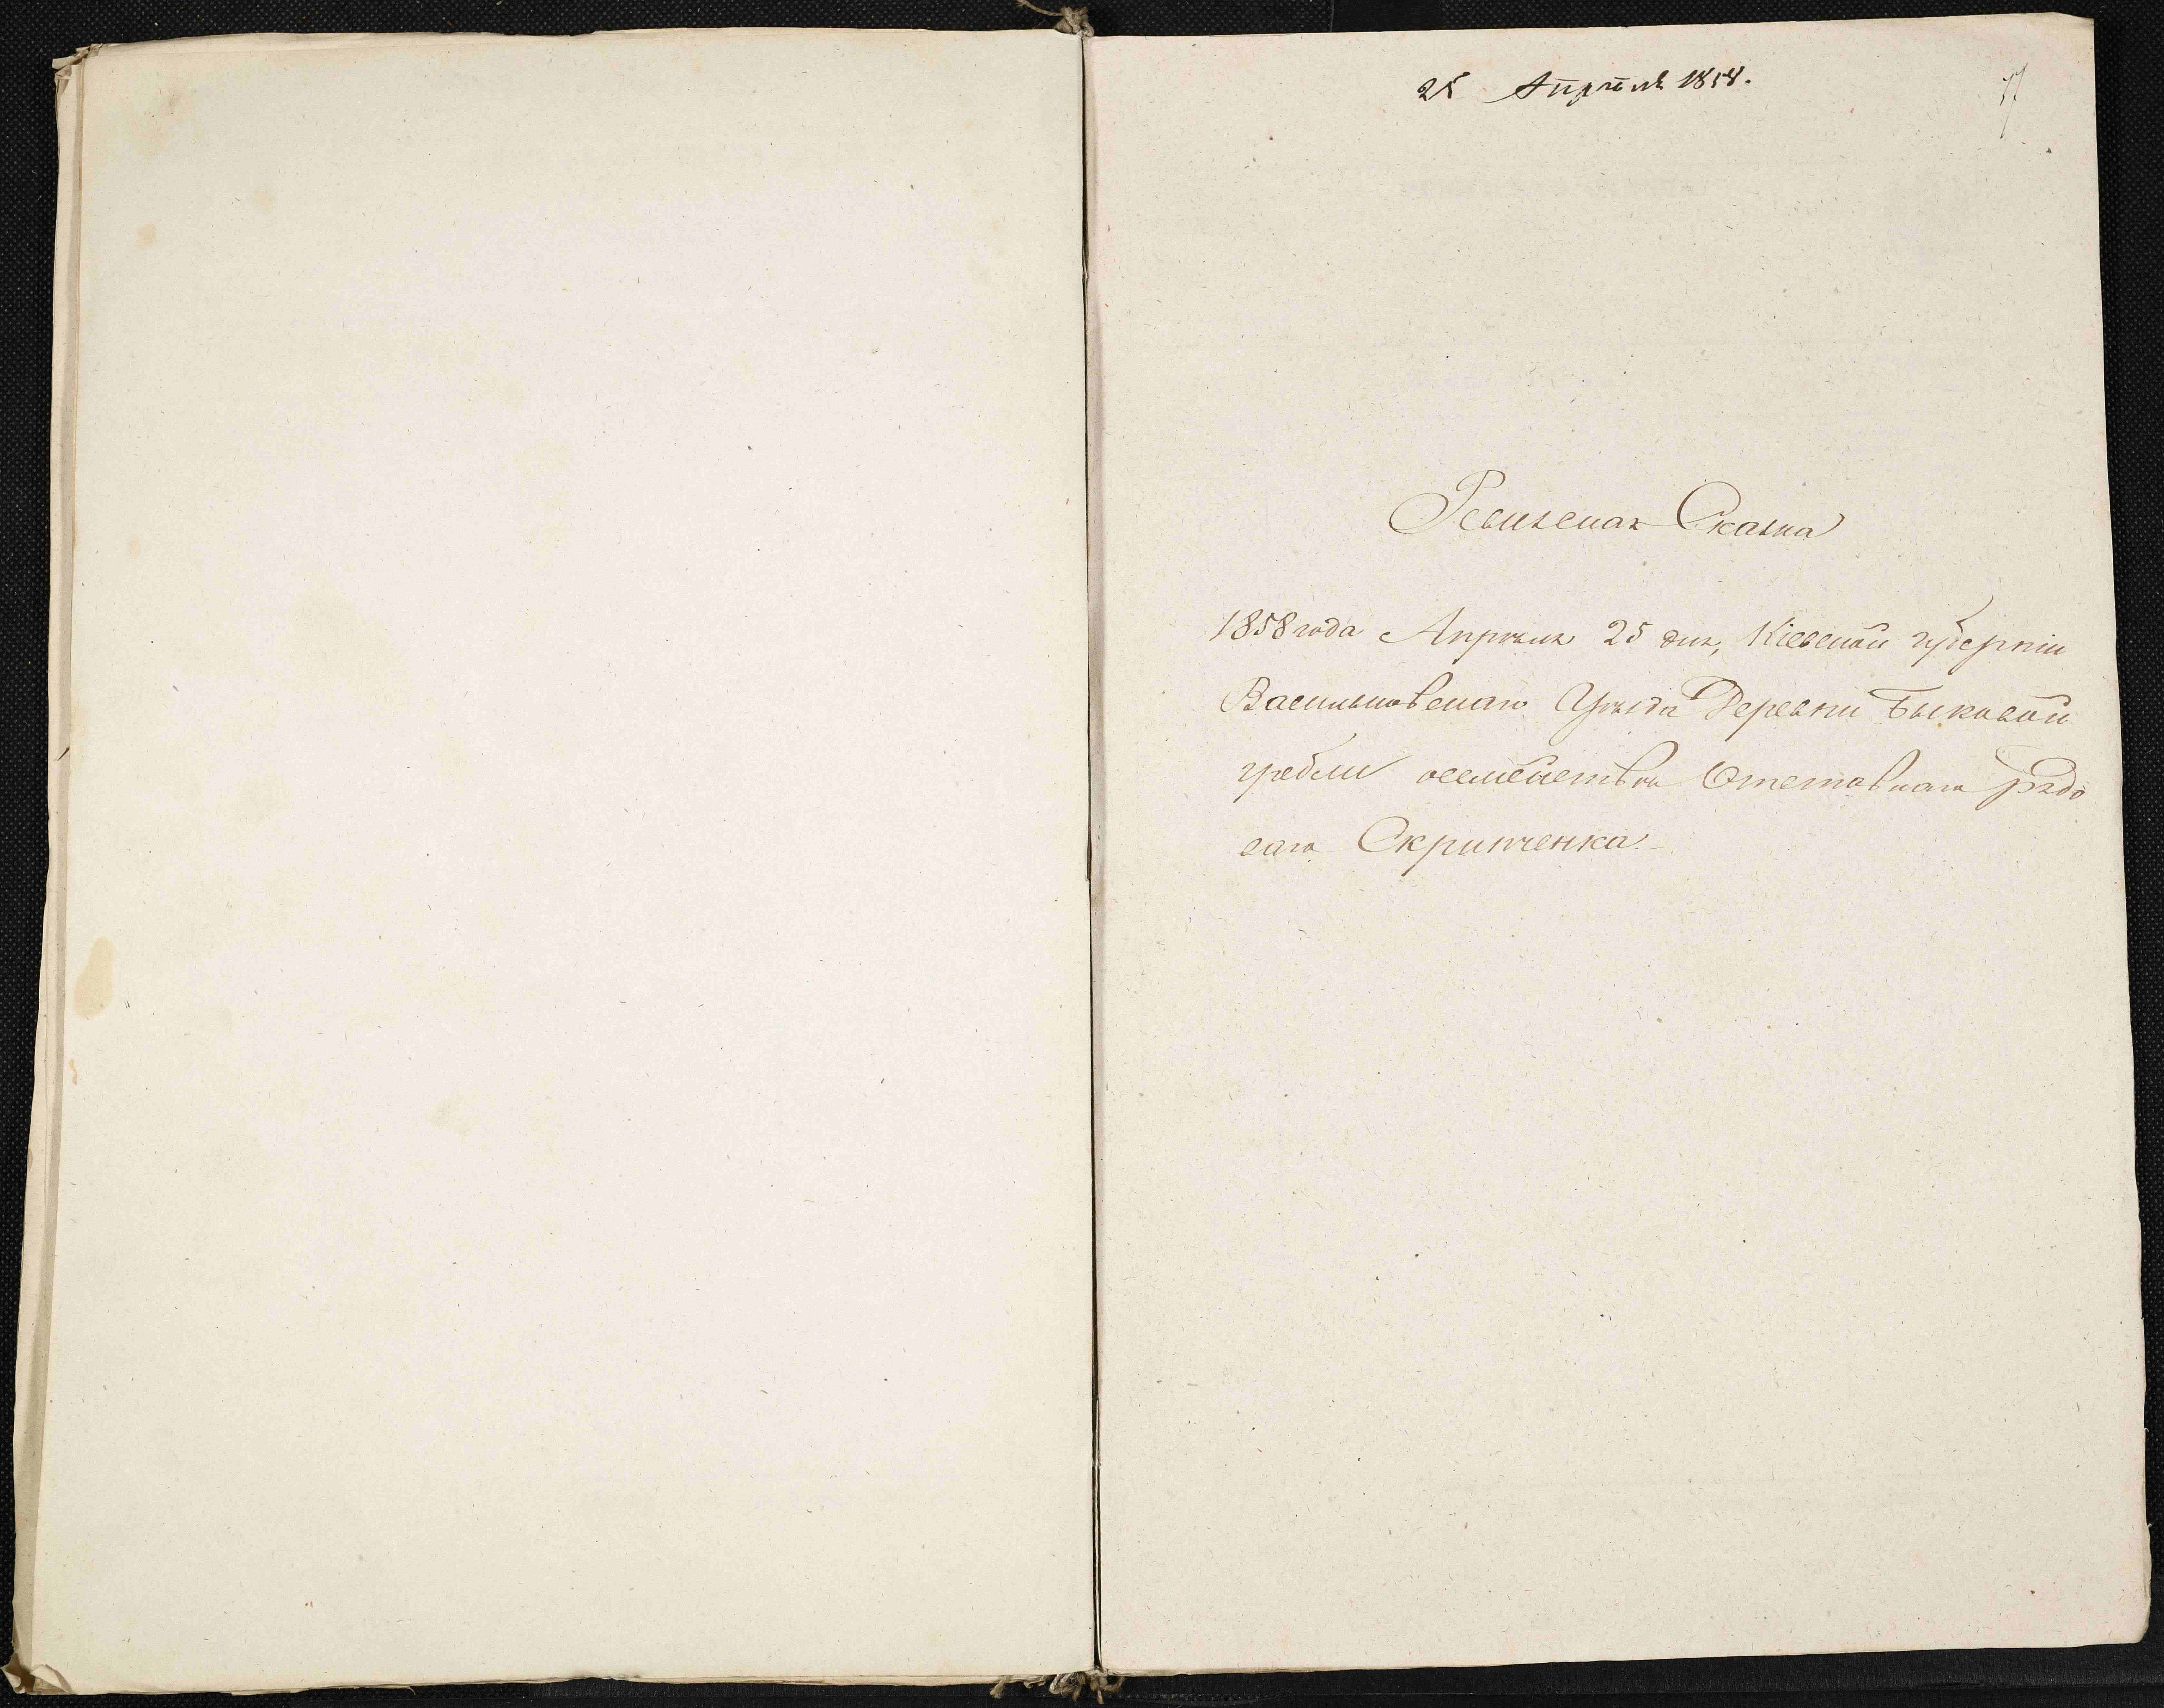 25 Апрѣля 1858.
Ревизская Сказка
1858 года Апрѣля 25 дня, Кіевской губерніи
Васильковскаго Уѣзда Деревни Быковой
гребли о семействѣ Отставнаго рядо
ваго Скрипченка.